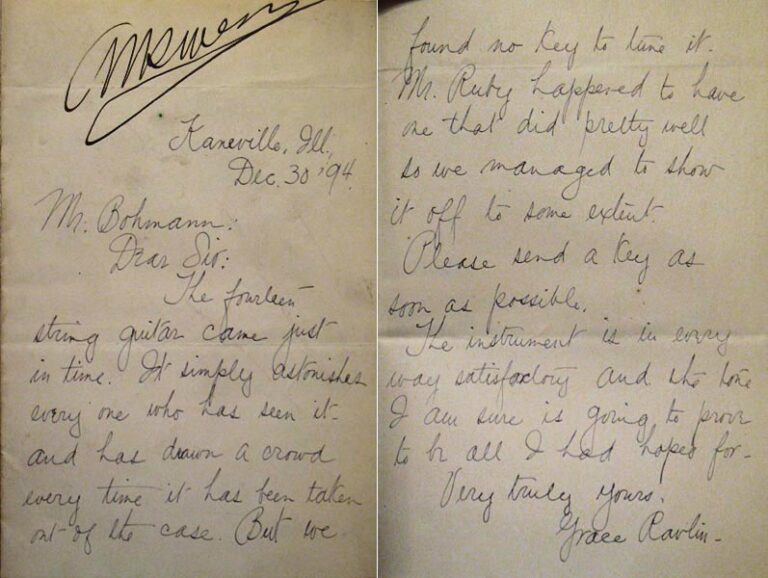 Kaneville, Ill.,
Dec. 30 '94.
Mr. Bohmann:
Dear Sir:
The fourteen
string guitar came just
in time. It simply astonishes
every one who has seen it
and has drawn a crowd
every time it has been taken
out of the case. But we
found no key to tune it.
Mr. Ruby happened to have
one that did pretty well
so we managed to show
it off to some extent.
Please send a key as
soon as possible.
The instrument is in every
way satisfactory and the tone
I am sure is going to prove
to be all I had hoped for.
Very truly yours,
Grace Ravlin.